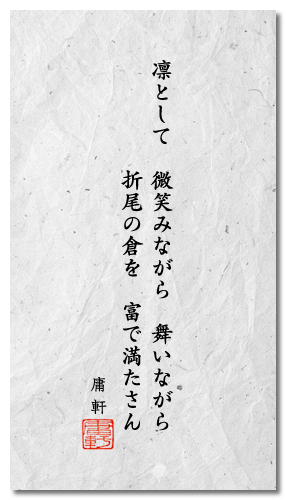 凛として　微笑みながら　舞いながら
折尾の倉を　富で満たさん
庸軒